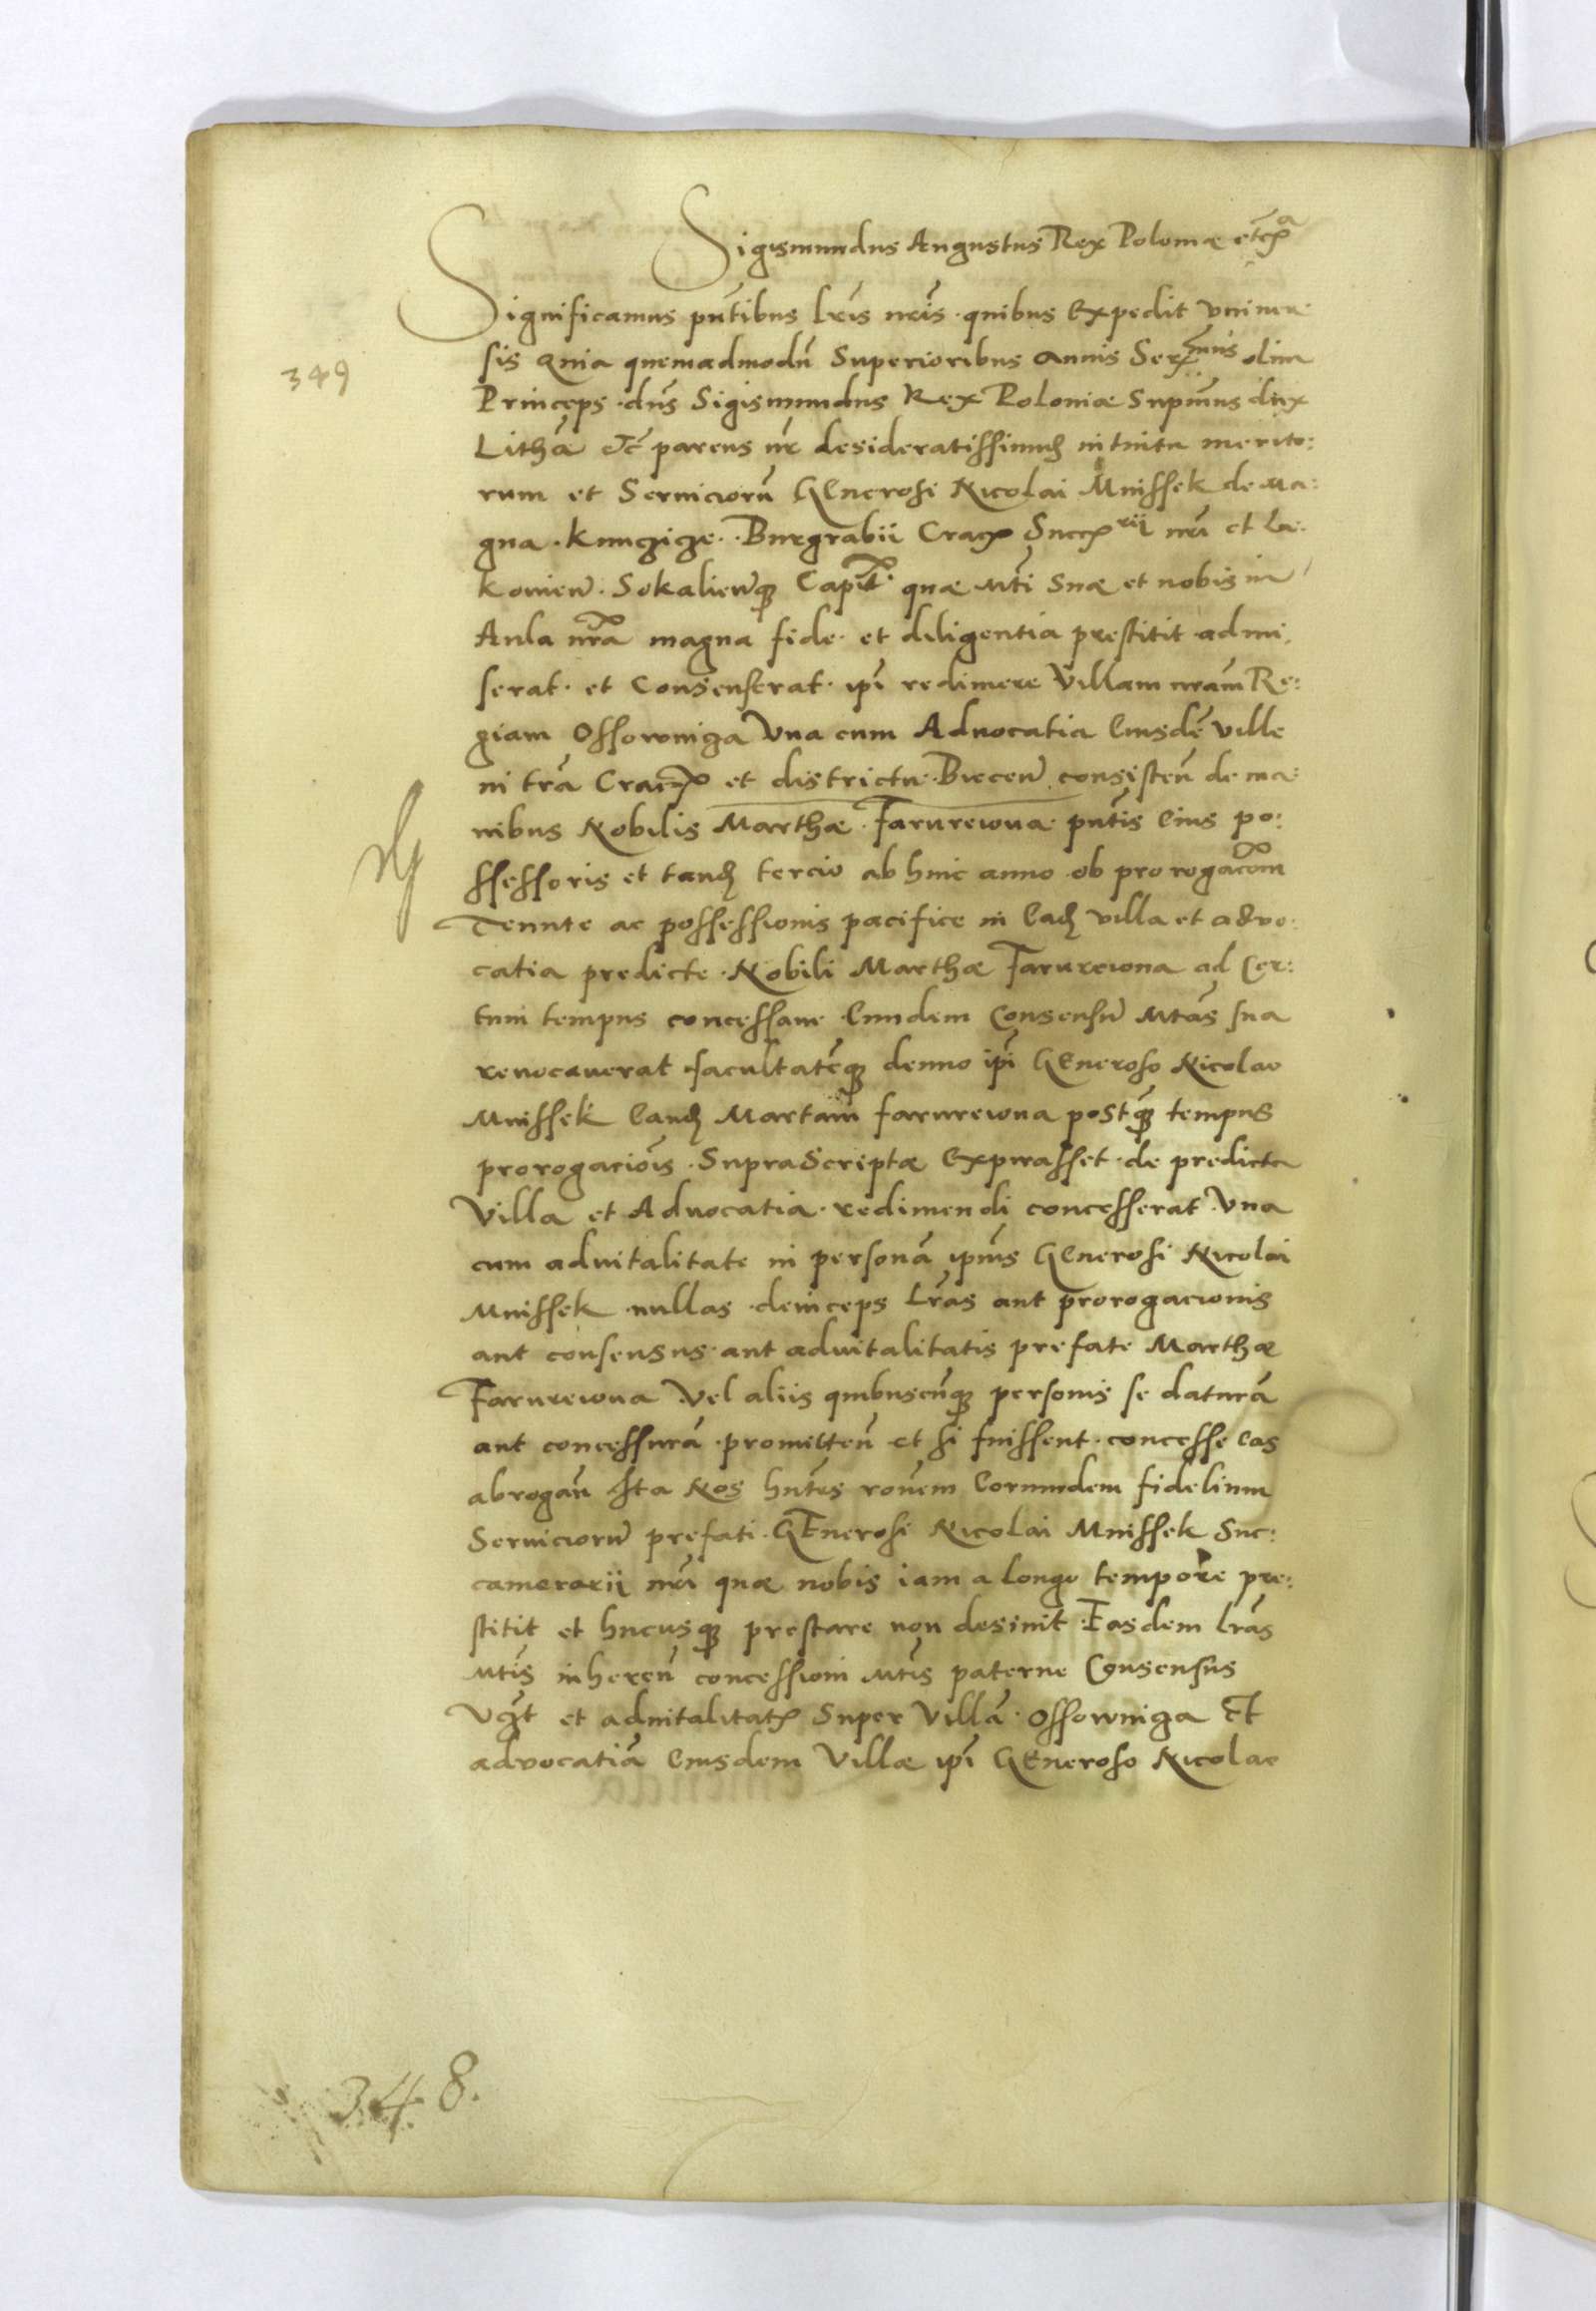 Sigismundus Augustus Rex Poloniæ etc̃a
Significamus pn̄tibus l̄ris nr̄is · quibus Expedit vniuer
349
sis Quia quemadmodū Superioribus annis Ser^mus olim
Princeps · dn̄s Sigismundus Rex Poloniæ Supm̄us dux
Lithā etc̄ parens nr̄ desideratissimus intuitu merito:
rum et Seruiciorū GEnerosi Nicolai Mnissek de Ma:
gna · Kunczicze · Burgrabii Crac̄ Succ^rii nr̄i et Lu:
kouien̄ · Sokalien̄q Capit̄ · quæ Mt̄i Suæ et nobis in
Aula nr̄a magna fide · et diligentia prestitit · admi,
serat · et Consenserat · ip̄i redimere Villam nr̄am Re:
giam Ossowniça Vna cum Aduocatia Eiusdē ville
in tr̄a Crac̄ et districtu · Biecen̄ consisten̄ de ma:
nibus Nobilis Marthæ · Farurewna · pn̄tis Eius po:
ssessoris et tandem tercio ab hinc anno ob prorogac̄om
Tenute ac possessionis pacifice in Eadem villa et advo:
catia predicte · Nobili Marthæ Farurewna ad Cer:
tum tempus concessam · Eundem Consensū Mt̄as sua
reuocauerat · facultatēq denuo ip̄i GEneroso Nicolao
Mnissek Eandem Martam farurewna postq̄ tempus
prorogaciōis · SupraScriptæ Expirasset · de predicta
Villa et Aduocatia · redimendi concesserat · Vna
cum aduitalitate in personā ipius GEnerosi Nicolai
Mnissek · nullas · deinceps l̄ras aut prorogacionis
aut consensus · aut aduitalitatis prefate Marthæ
Farurewna · Vel aliis quibuscūq personis se daturā
aut concessurā · promitten̄ et si fuissent · concesse Eas
abrogan̄ Ita Nos hn̄tes ron̄em Eorundem fidelium
Seruiciorū prefati · GEnerosi Nicolai Mnissek Suc:
camerarii nr̄i quæ nobis iam a longo tempore pre:
stitit et hucusq prestare non desinit · Easdem l̄ras
Mt̄is inheren̄ concessioni Mt̄is paterne Consensus
Vc̄t et aduitalitatis Super Villā · Ossowniça Et
advocatiā Eiusdem Villæ ip̄i GEneroso Nicolao
348.